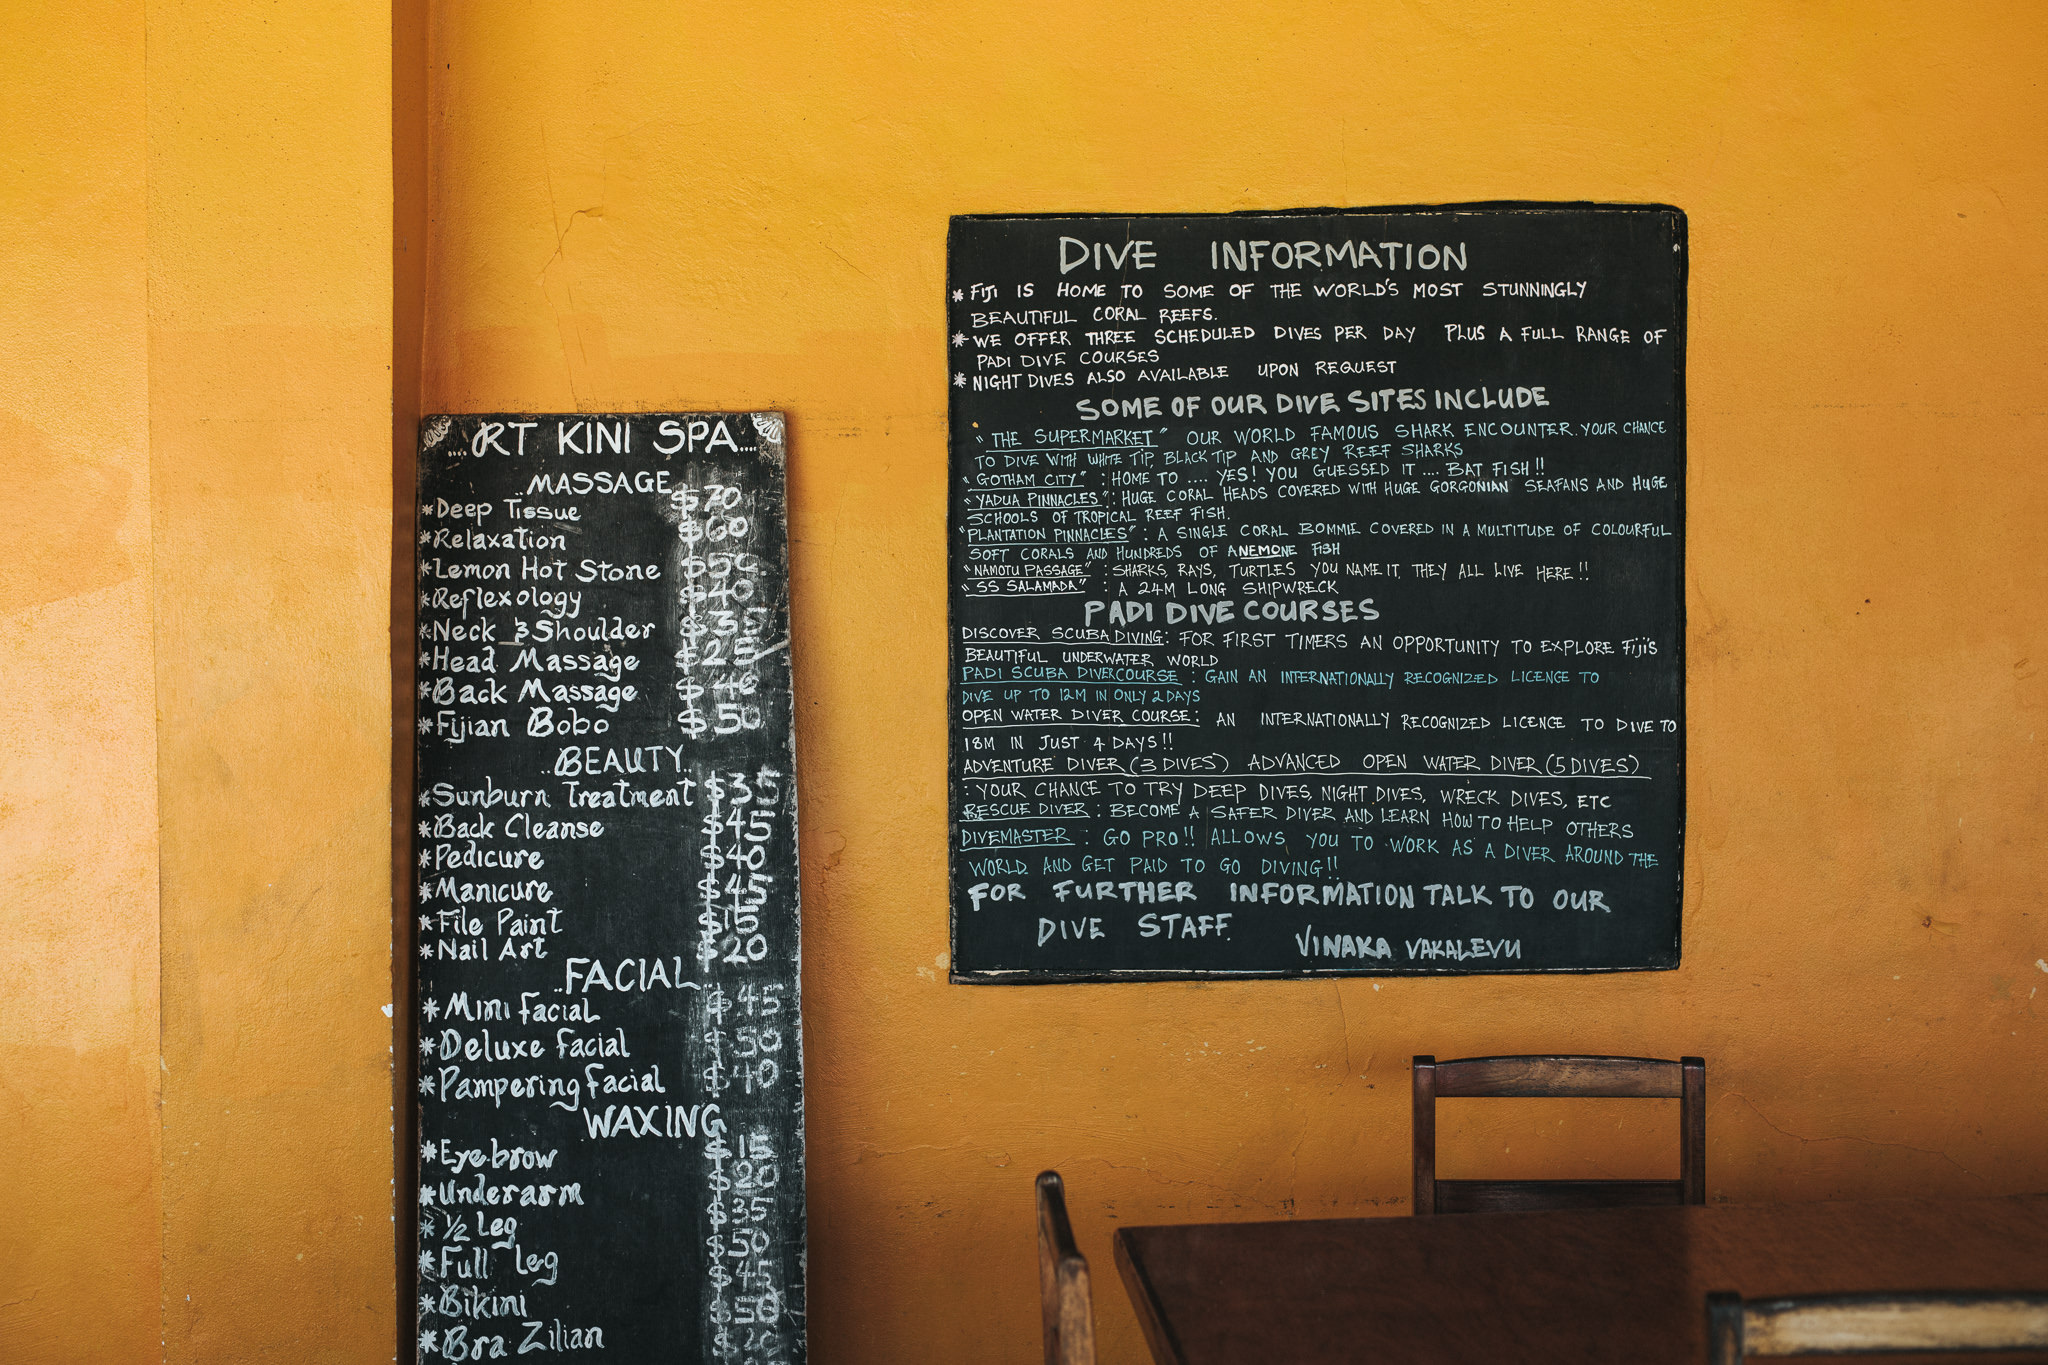 ....RT KINI SPA....
..MASSAGE..
*Deep Tissue $70
*Relaxation $60
*Lemon Hot Stone $50
*Reflexology $40
*Neck & Shoulder $35
*Head Massage $25
*Back Massage $40
*Fijian Bobo $50
..BEAUTY..
*Sunburn Treatment $35
*Back Cleanse $45
*Pedicure $40
*Manicure $45
*File Paint $15
*Nail Art $20
..FACIAL..
*Mini facial $45
*Deluxe facial $50
*Pampering facial $40
WAXING
*Eyebrow $15
*Underarm $20
*1/2 Leg $35
*Full Leg $50
*Bikini $45
*Bra Zilian $50
DIVE INFORMATION
* FIJI IS HOME TO SOME OF THE WORLD'S MOST STUNNINGLY
BEAUTIFUL CORAL REEFS.
* WE OFFER THREE SCHEDULED DIVES PER DAY PLUS A FULL RANGE OF
PADI DIVE COURSES
* NIGHT DIVES ALSO AVAILABLE UPON REQUEST
SOME OF OUR DIVE SITES INCLUDE
"THE SUPERMARKET" OUR WORLD FAMOUS SHARK ENCOUNTER. YOUR CHANCE
TO DIVE WITH WHITE TIP, BLACK TIP AND GREY REEF SHARKS
"GOTHAM CITY" : HOME TO .... YES! YOU GUESSED IT .... BAT FISH!!
"YADUA PINNACLES": HUGE CORAL HEADS COVERED WITH HUGE GORGONIAN SEAFANS AND HUGE
SCHOOLS OF TROPICAL REEF FISH.
"PLANTATION PINNACLES" : A SINGLE CORAL BOMMIE COVERED IN A MULTITUDE OF COLOURFUL
SOFT CORALS AND HUNDREDS OF ANEMONE FISH
"NAMOTU PASSAGE" : SHARKS, RAYS, TURTLES YOU NAME IT, THEY ALL LIVE HERE!!
"SS SALAMADA" : A 24M LONG SHIPWRECK
PADI DIVE COURSES
DISCOVER SCUBA DIVING: FOR FIRST TIMERS AN OPPORTUNITY TO EXPLORE Fiji's
BEAUTIFUL UNDERWATER WORLD
PADI SCUBA DIVER COURSE : GAIN AN INTERNATIONALLY RECOGNIZED LICENCE TO
DIVE UP TO 12M IN ONLY 2 DAYS
OPEN WATER DIVER COURSE: AN INTERNATIONALLY RECOGNIZED LICENCE TO DIVE TO
18M IN JUST 4 DAYS!!
ADVENTURE DIVER (3 DIVES) ADVANCED OPEN WATER DIVER (5 DIVES)
: YOUR CHANCE TO TRY DEEP DIVES, NIGHT DIVES, WRECK DIVES, ETC
RESCUE DIVER : BECOME A SAFER DIVER AND LEARN HOW TO HELP OTHERS
DIVEMASTER : GO PRO!! ALLOWS YOU TO WORK AS A DIVER AROUND THE
WORLD AND GET PAID TO GO DIVING!!
FOR FURTHER INFORMATION TALK TO OUR
DIVE STAFF.
VINAKA VAKALEVU